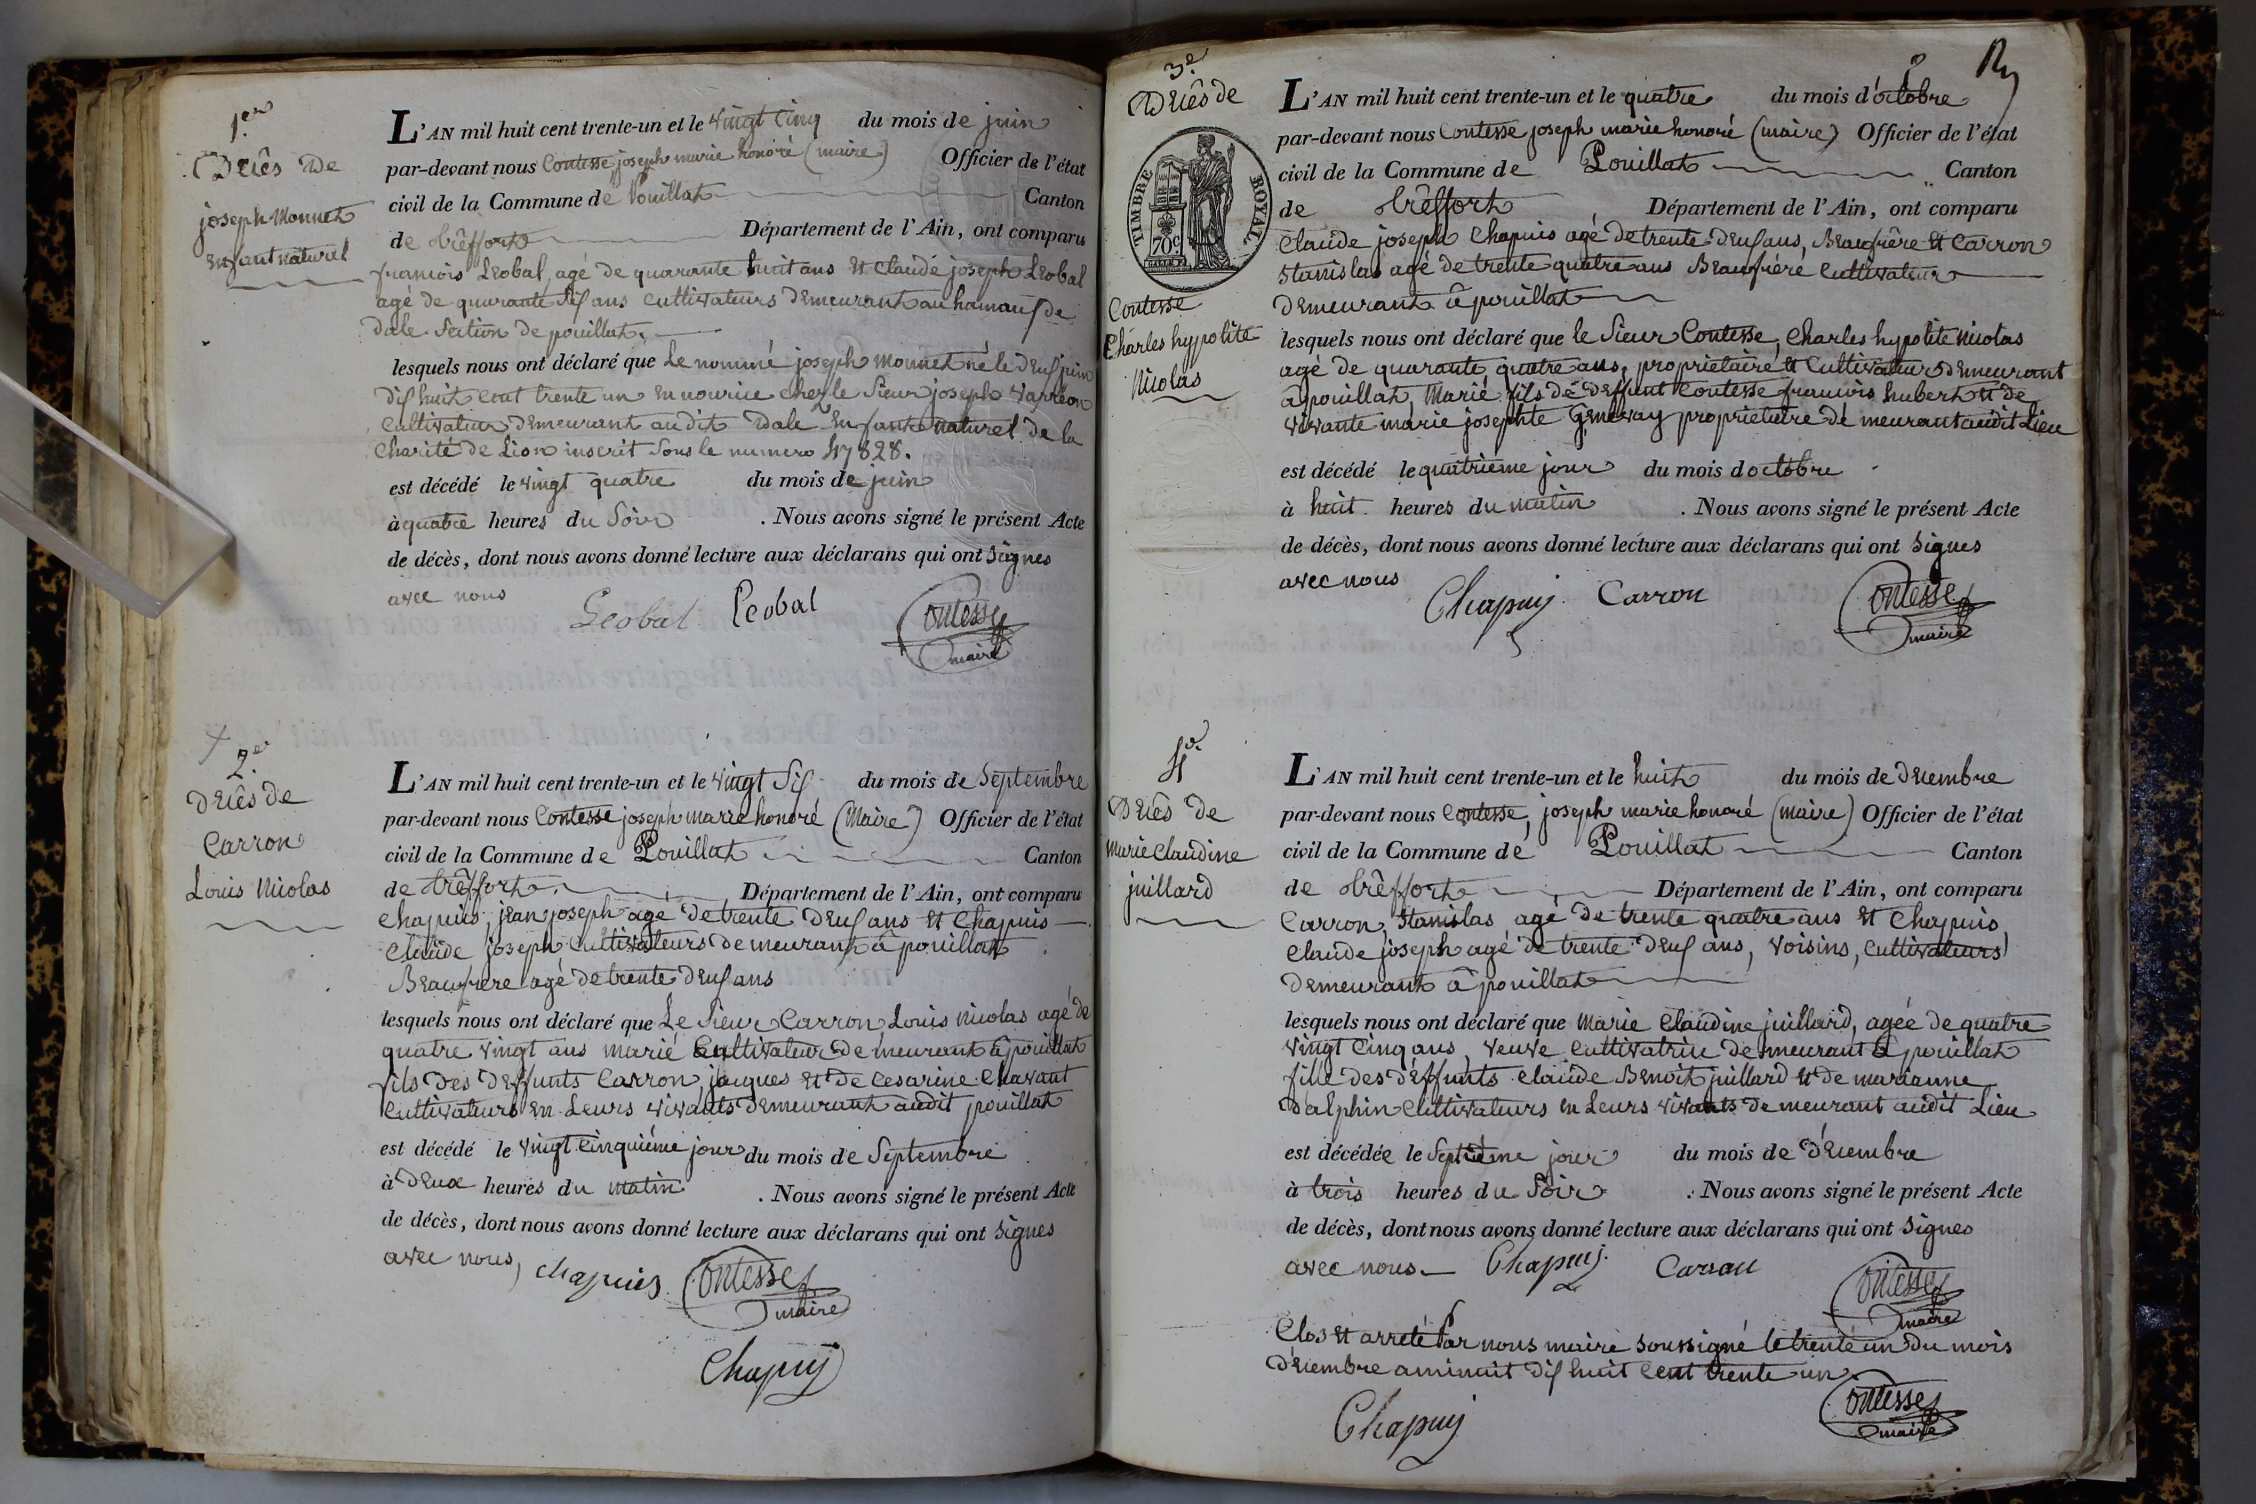 1.er
Décês De
joseph Monnet
Enfant naturel
L'AN mil huit cent trente-un et le vingt cinq du mois de juin
par-devant nous Contesse joseph marie honoré (maire) Officier de l'état
civil de la Commune de Pouillat Canton
de trêffort Département de l'Ain, ont comparu
francois Léobal, agé de quarante huit ans Et Claude joseph Léobal
agé de quarante Six ans cultivateurs Demeurant au hamaux de
Dale Section de pouillat.
lesquels nous ont déclaré que Le nommé joseph Monnet né le Deux juin
Dix huit cent trente un En nourice chez le Sieur joseph
Cultivateur Demeurant audit Dale Enfant naturel de la
Charité de Lion inscrit Sous le numero 47828.
est décédé le vingt quatre du mois de juin
à quatre heures du Soir . Nous avons signé le présent Acte
de décès, dont nous avons donné lecture aux déclarans qui ont Signes
avec nous
Leobal Leobal Contesse
maire
2.e
Décês De
Carron
Louis Nicolas
L'AN mil huit cent trente-un et le vingt Six du mois de Septembre
par-devant nous Contesse joseph marie honoré (Maire) Officier de l'état
civil de la Commune de Pouillat Canton
de trêffort Département de l'Ain, ont comparu
Chapuis, jean joseph agé De trente Deux ans Et Chapuis
Claude joseph Cultivateurs Demeurant â pouillat
Beaufrere agé De trente Deux ans
lesquels nous ont déclaré que Le Sieur Carron Louis Nicolas agé de
quatre vingt ans marié Cultivateur De meurant â pouillat
fils Des Deffunts Carron jacques Et De Cesarine Chavant
Cultivateurs En Leurs vivants Demeurant audit pouillat
est décédé le vingt Cinquiéme jour du mois de Septembre
à Deux heures du matin . Nous avons signé le présent Acte
de décès, dont nous avons donné lecture aux déclarans qui ont Signes
avec nous, chapuis Contesse
maire
Chapuy
3.e
Décês de
TIMBRE ROYAL
70c
Contesse
Charles hypolite
Nicolas
L'AN mil huit cent trente-un et le quatre du mois d'octobre
par-devant nous Contesse joseph marie honoré (maire) Officier de l'état
civil de la Commune de Pouillat Canton
de trêffort Département de l'Ain, ont comparu
Claude joseph Chapuis agé De trente Deux ans, Beaufrêre Et Carron
Stanislas agé De trente quatre ans Beaufréré Cultivateur
Demeurant â pouillat
lesquels nous ont déclaré que le Sieur Contesse, Charles hypolite Nicolas
agé de quarante quatre ans, proprietaire Et Cultivateur Demeurant
â pouillat, Marié fils dé Deffunt Contesse francois hubert Et De
vivante marie josephte Genevay proprietaire De meurant audit Lieu
est décédé le quatrieme jour du mois doctobre
à huit heures du matin . Nous avons signé le présent Acte
de décès, dont nous avons donné lecture aux déclarans qui ont Signes
avec nous
Chapuy Carron Contesse
maire
4.e
Décês De
Marie Claudine
juillard
L'AN mil huit cent trente-un et le huit du mois de Décembre
par-devant nous Contesse, joseph marie honoré (maire) Officier de l'état
civil de la Commune de Pouillat Canton
de trêffort Département de l'Ain, ont comparu
Carron, Stanislas agé De trente quatre ans Et Chapuis,
Claude joseph agé De trente Deux ans, voisins, Cultivateurs
Demeurant â pouillat
lesquels nous ont déclaré que Marie Claudine juillard, agée de quatre
vingt Cinq ans, veuve Cultivatrice De meurant â pouillat
fille Des Deffunts Claude Benoit juillard Et de marianne
Dalphin Cultivateurs En Leurs vivants De meurant audit Lieu
est décédée le Septiéme jour du mois de Décembre
à trois heures du Soir . Nous avons signé le présent Acte
de décès, dont nous avons donné lecture aux déclarans qui ont Signes
avec nous Chapuy Carron
Contesse
maire
Clos Et arreté Par nous maire Soussigné le trente un Du mois
Décembre a minuit Dix huit Cent trente un
Contesse
maire
Chapuy